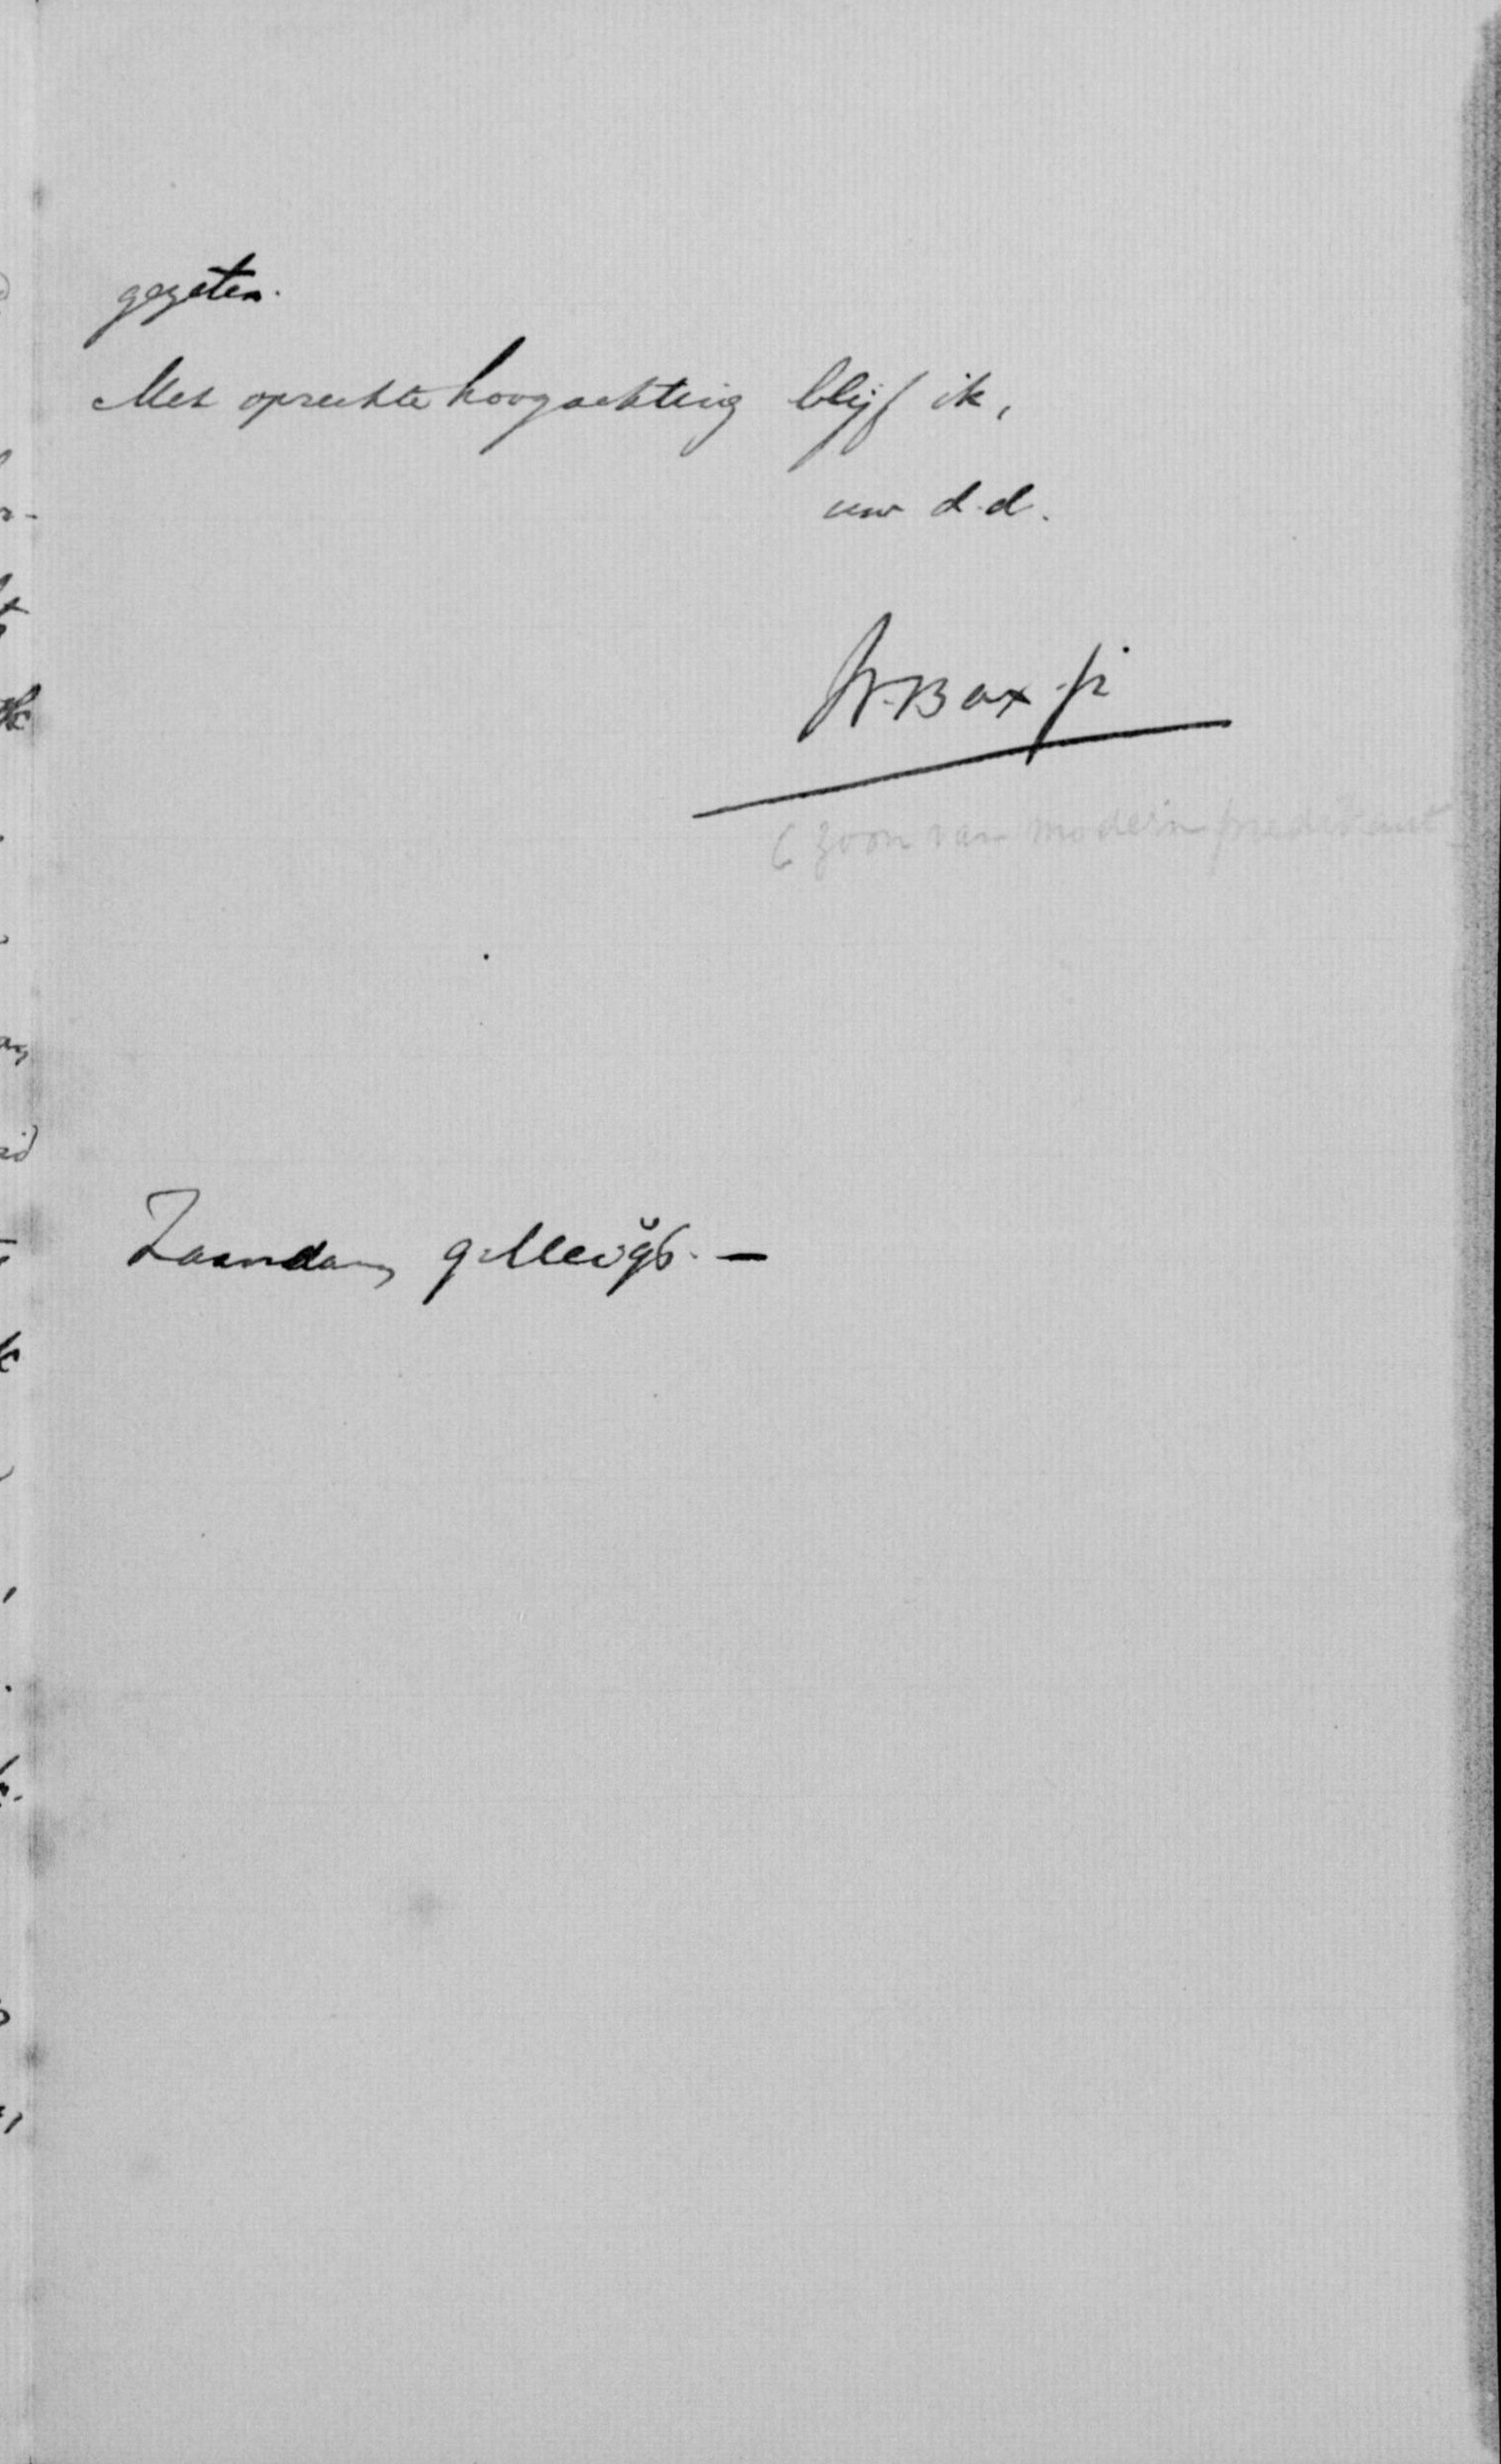 gezeten.
Met oprechte hoogachting blijf ik,
uw d.d.
W. Bax jr
(zoon van modern predikant
Zaandam, 9 Mei '96. —